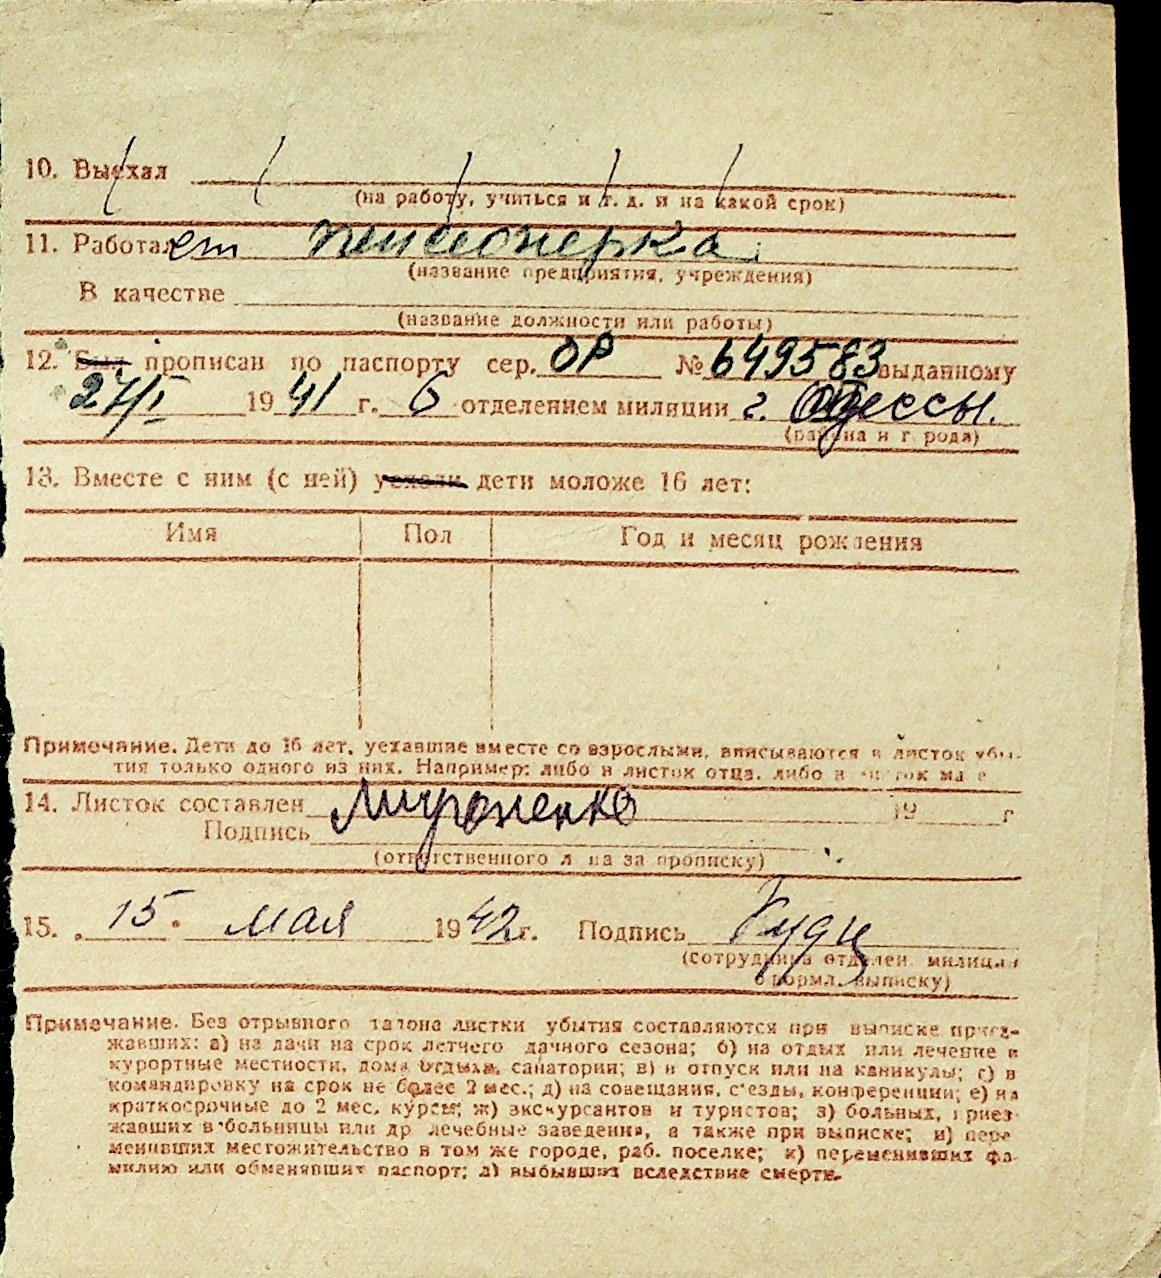 10. Выехал
(на работу, учиться и т. д. и на какой срок)
11. Работает пенсионерка
(название предприятия, учреждения)
В качестве
(название должности или работы)
12. Был прописан по паспорту сер. ОР № 649583 выданному
27/I 1941 г. 6 отделением милиции г. Одессы.
(района и города)
13. Вместе с ним (с ней) уехали дети моложе 16 лет:
Имя Пол Год и месяц рождения
Примечание. Дети до 16 лет, уехавшие вместе со взрослыми, вписываются в листок убы-
тия только одного из них. Например: либо в листок отца, либо в листок ма
14. Листок составлен Мироненко 19 г
Подпись
(ответственного лица за прописку)
15. 15 мая 1942 г. Подпись
(сотрудника отделен. милиции
оформл. выписку)
Примечание. Без отрывного талона листки убытия составляются при выписке приез-
жавших: а) на дачи на срок летнего дачного сезона; б) на отдых или лечение в
курортные местности, дома отдыха, санатории; в) в отпуск или на каникулы; г) в
командировку на срок не более 2 мес.; д) на совещания, съезды, конференции; е) на
краткосрочные до 2 мес. курсы; ж) экскурсантов и туристов; з) больных, приез-
жавших в больницы или др лечебные заведения, а также при выписке; и) пере
менивших местожительство в том же городе, раб. поселке; к) переменивших фа-
милию или обменявших паспорт; л) выбывших вследствие смерти.